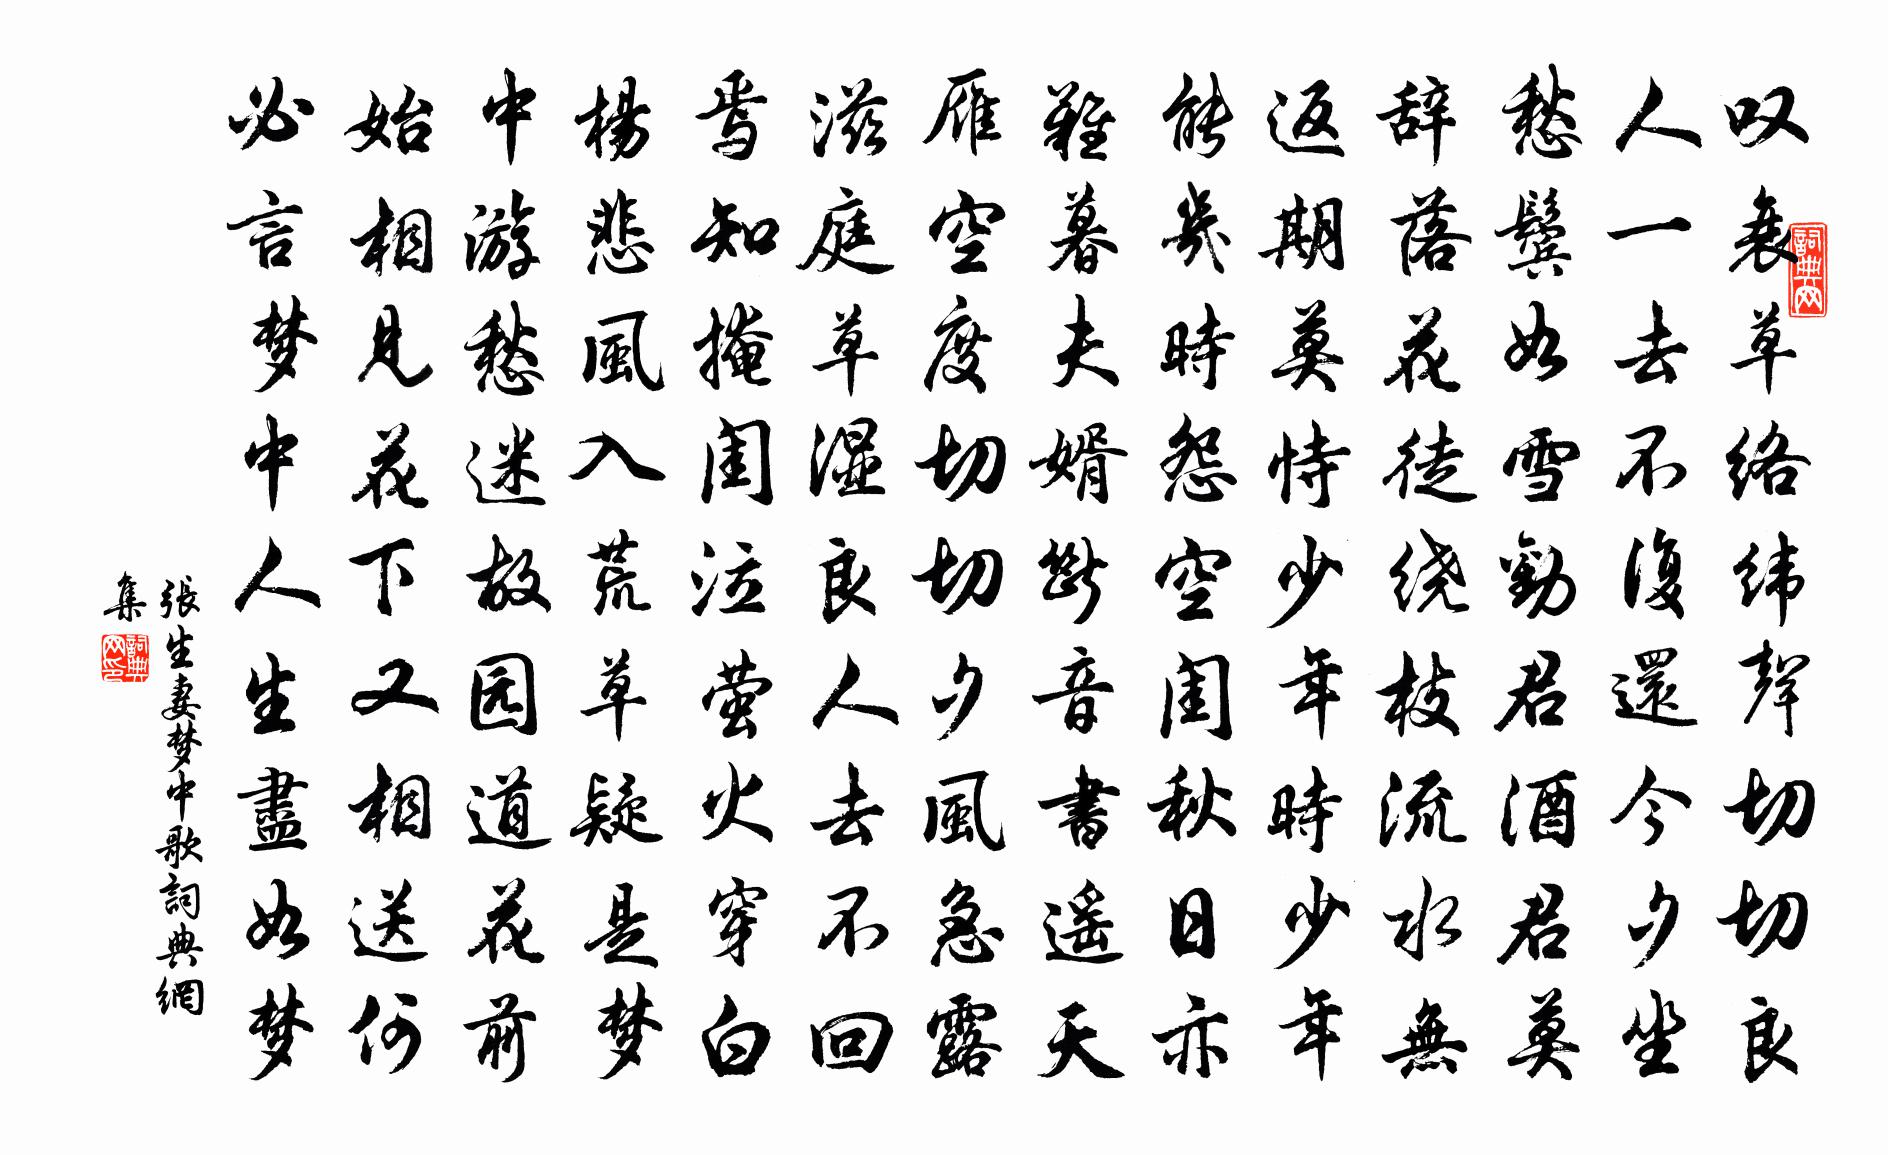 叹衰草络纬聲切切良
人一去不復還今夕坐
愁鬓如雪勸君酒君莫
辞落花徒绕枝流水無
返期莫恃少年時少年
能幾時怨空闺秋日亦
難暮夫婿断音書遥天
雁空度切切夕風急露
滋庭草湿良人去不回
焉知掩闺泣萤火穿白
楊悲風入荒草疑是梦
中游愁迷故园道花前
始相見花下又相送何
必言梦中人生盡如梦
張生妻梦中歌詞典網
集
詞典网
詞典网印